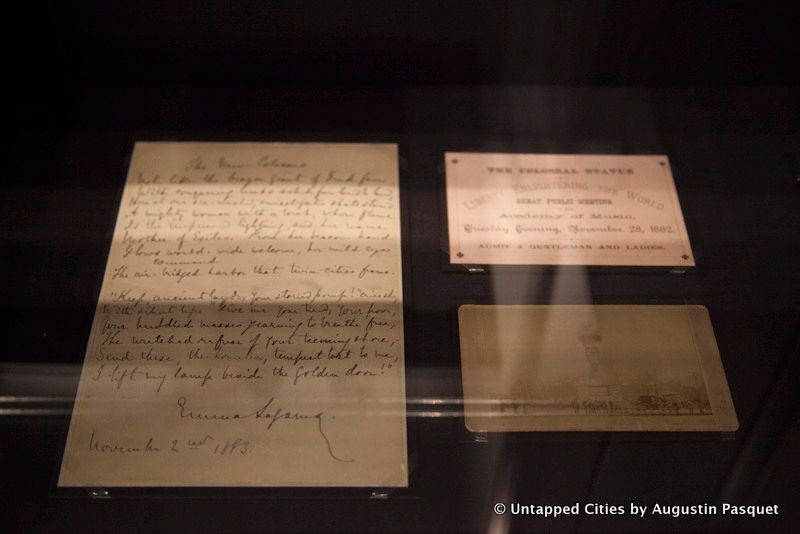 The New Colossus
Not like the brazen giant of Greek fame
With conquering limbs astride from land to land
Here at our sea-washed, sunset gates shall stand
A mighty woman with a torch, whose flame
Is the imprisoned lightning, and her name
Mother of Exiles. From her beacon-hand
Glows world-wide welcome, her mild eyes
command
The air-bridged harbor that twin-cities frame.
"Keep, ancient lands, your storied pomp!" cries she,
With silent lips. "Give me your tired, your poor,
Your huddled masses yearning to breathe free,
The wretched refuse of your teeming shore,
Send these, the homeless, tempest-tost to me,
I lift my lamp beside the golden door!"
Emma Lazarus.
November 2nd 1883.
THE COLOSSAL STATUE
LIBERTY ENLIGHTENING THE WORLD.
GREAT PUBLIC MEETING
Academy of Music,
Tuesday Evening, November 28, 1882.
ADMIT A GENTLEMAN AND LADIES.
© Untapped Cities by Augustin Pasquet